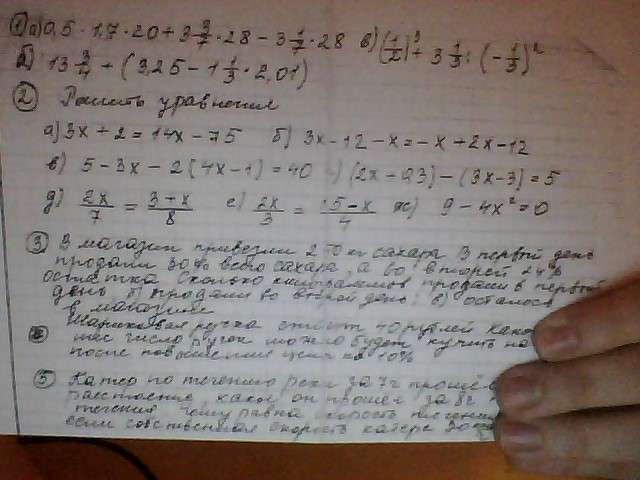 ① а) 0,5 · 1,7 · 20 + 3 3/7 · 28 − 3 1/7 · 28 в) (1/2)³ + 3 1/3 : (−1/3)²
б) 13 3/4 + (3,25 − 1 1/3 · 2,01)
② Решить уравнения
а) 3x + 2 = 14x − 75 б) 3x − 12 − x = −x + 2x − 12
в) 5 − 3x − 2(4x − 1) = 40 ) (2x − 0,3) − (3x − 3) = 5
д) 2x/7 = 3+x/8 е) 2x/3 = 5−x/4 ж) 9 − 4x² = 0
③ В магазин привезли 250 кг сахара В первый день
продали 30% всего сахара, а во второй 24%
остатка Сколько килограммов продали в первый
день б) продали во второй день в) осталось
в магазине
Шариковая ручка стоит 40 рублей Како
шее число ручек можно будет купить на
после повышения цены на 10%
5 Катер по течению реки за 7 ч прошёл
расстояние, какое он прошел за 8 ч
течения Чему равна скорость течения
если собственная скорость катера 20